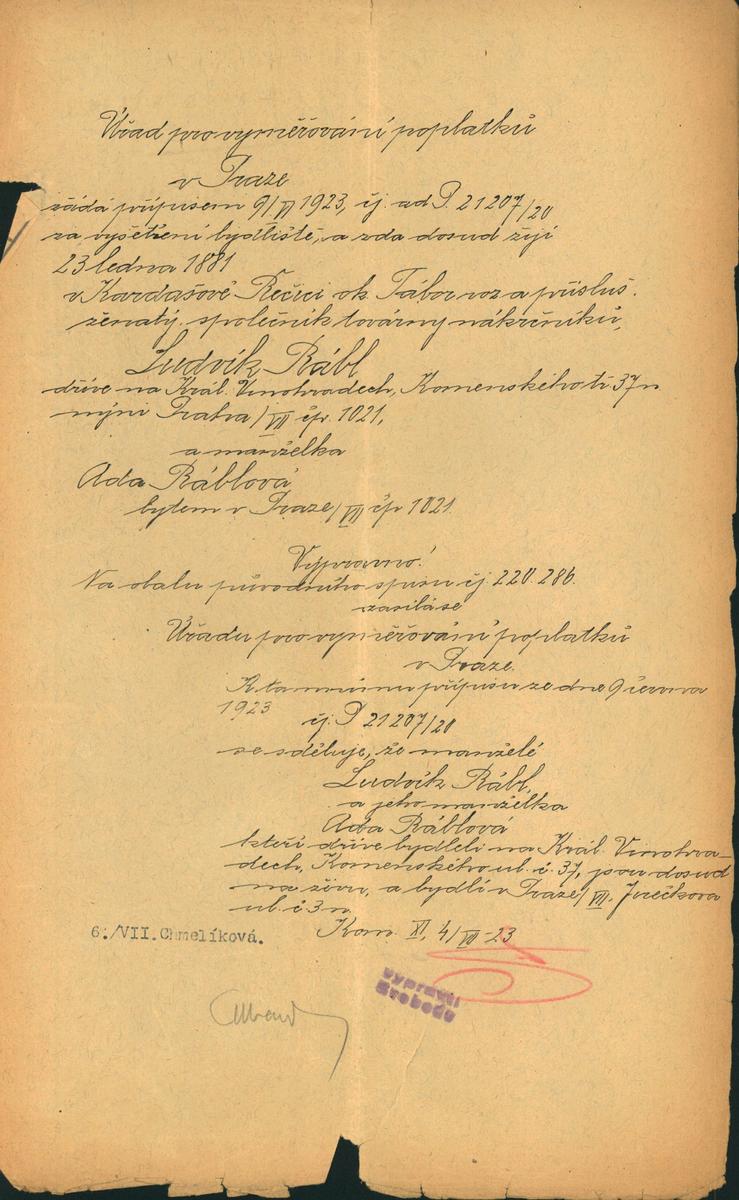 Úřad pro vyměřování poplatků
v Praze
žádá přípisem 9/VI 1923, čj. ad P. 21207/20
za vyšetření bydliště, a zda dosud žijí
23 ledna 1881
v Kardašově Řečici ok. Tábor roz a přísluš.
ženatý, společník továrny nákrčníků,
Ludvík Rábl
dříve na Král. Vinohradech, Komenského tř 37 n
nyní Praha/VII čp. 1021,
a manželka
Ada Ráblová
bytem v Praze/VII čp 1021.
Vypravno!
Na obalu původního spisu čj. 220.286.
zasílá se
Úřadu pro vyměřování poplatků
v Praze.
K tamnímu přípisu ze dne 9 června
1923
čj. P 21207/20
se sděluje, že manželé
Ludvík Rábl,
a jeho manželka
Ada Ráblová
kteří dříve bydleli na Král. Vinohra-
dech, Komenského ul. č. 37, jsou dosud
na živu, a bydlí v Praze/VII, Jirečkova
ul. č 3 n.
Kom. XI, 4/VII-23
6./VII. Chmelíková.
Vypravil
Svoboda